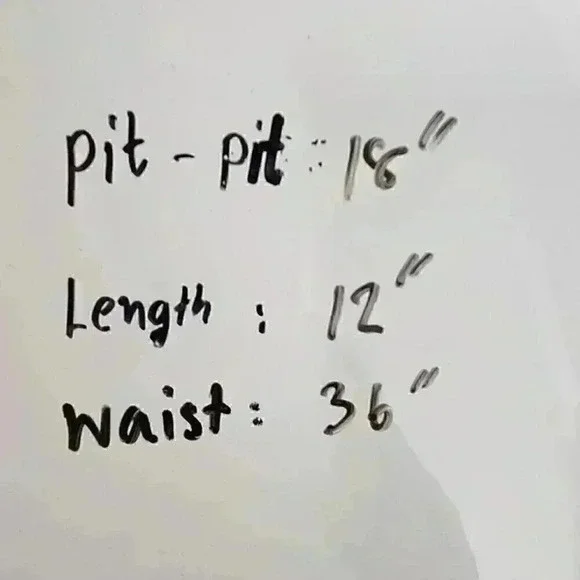 pit - pit : 18"
Length : 12"
waist : 36"